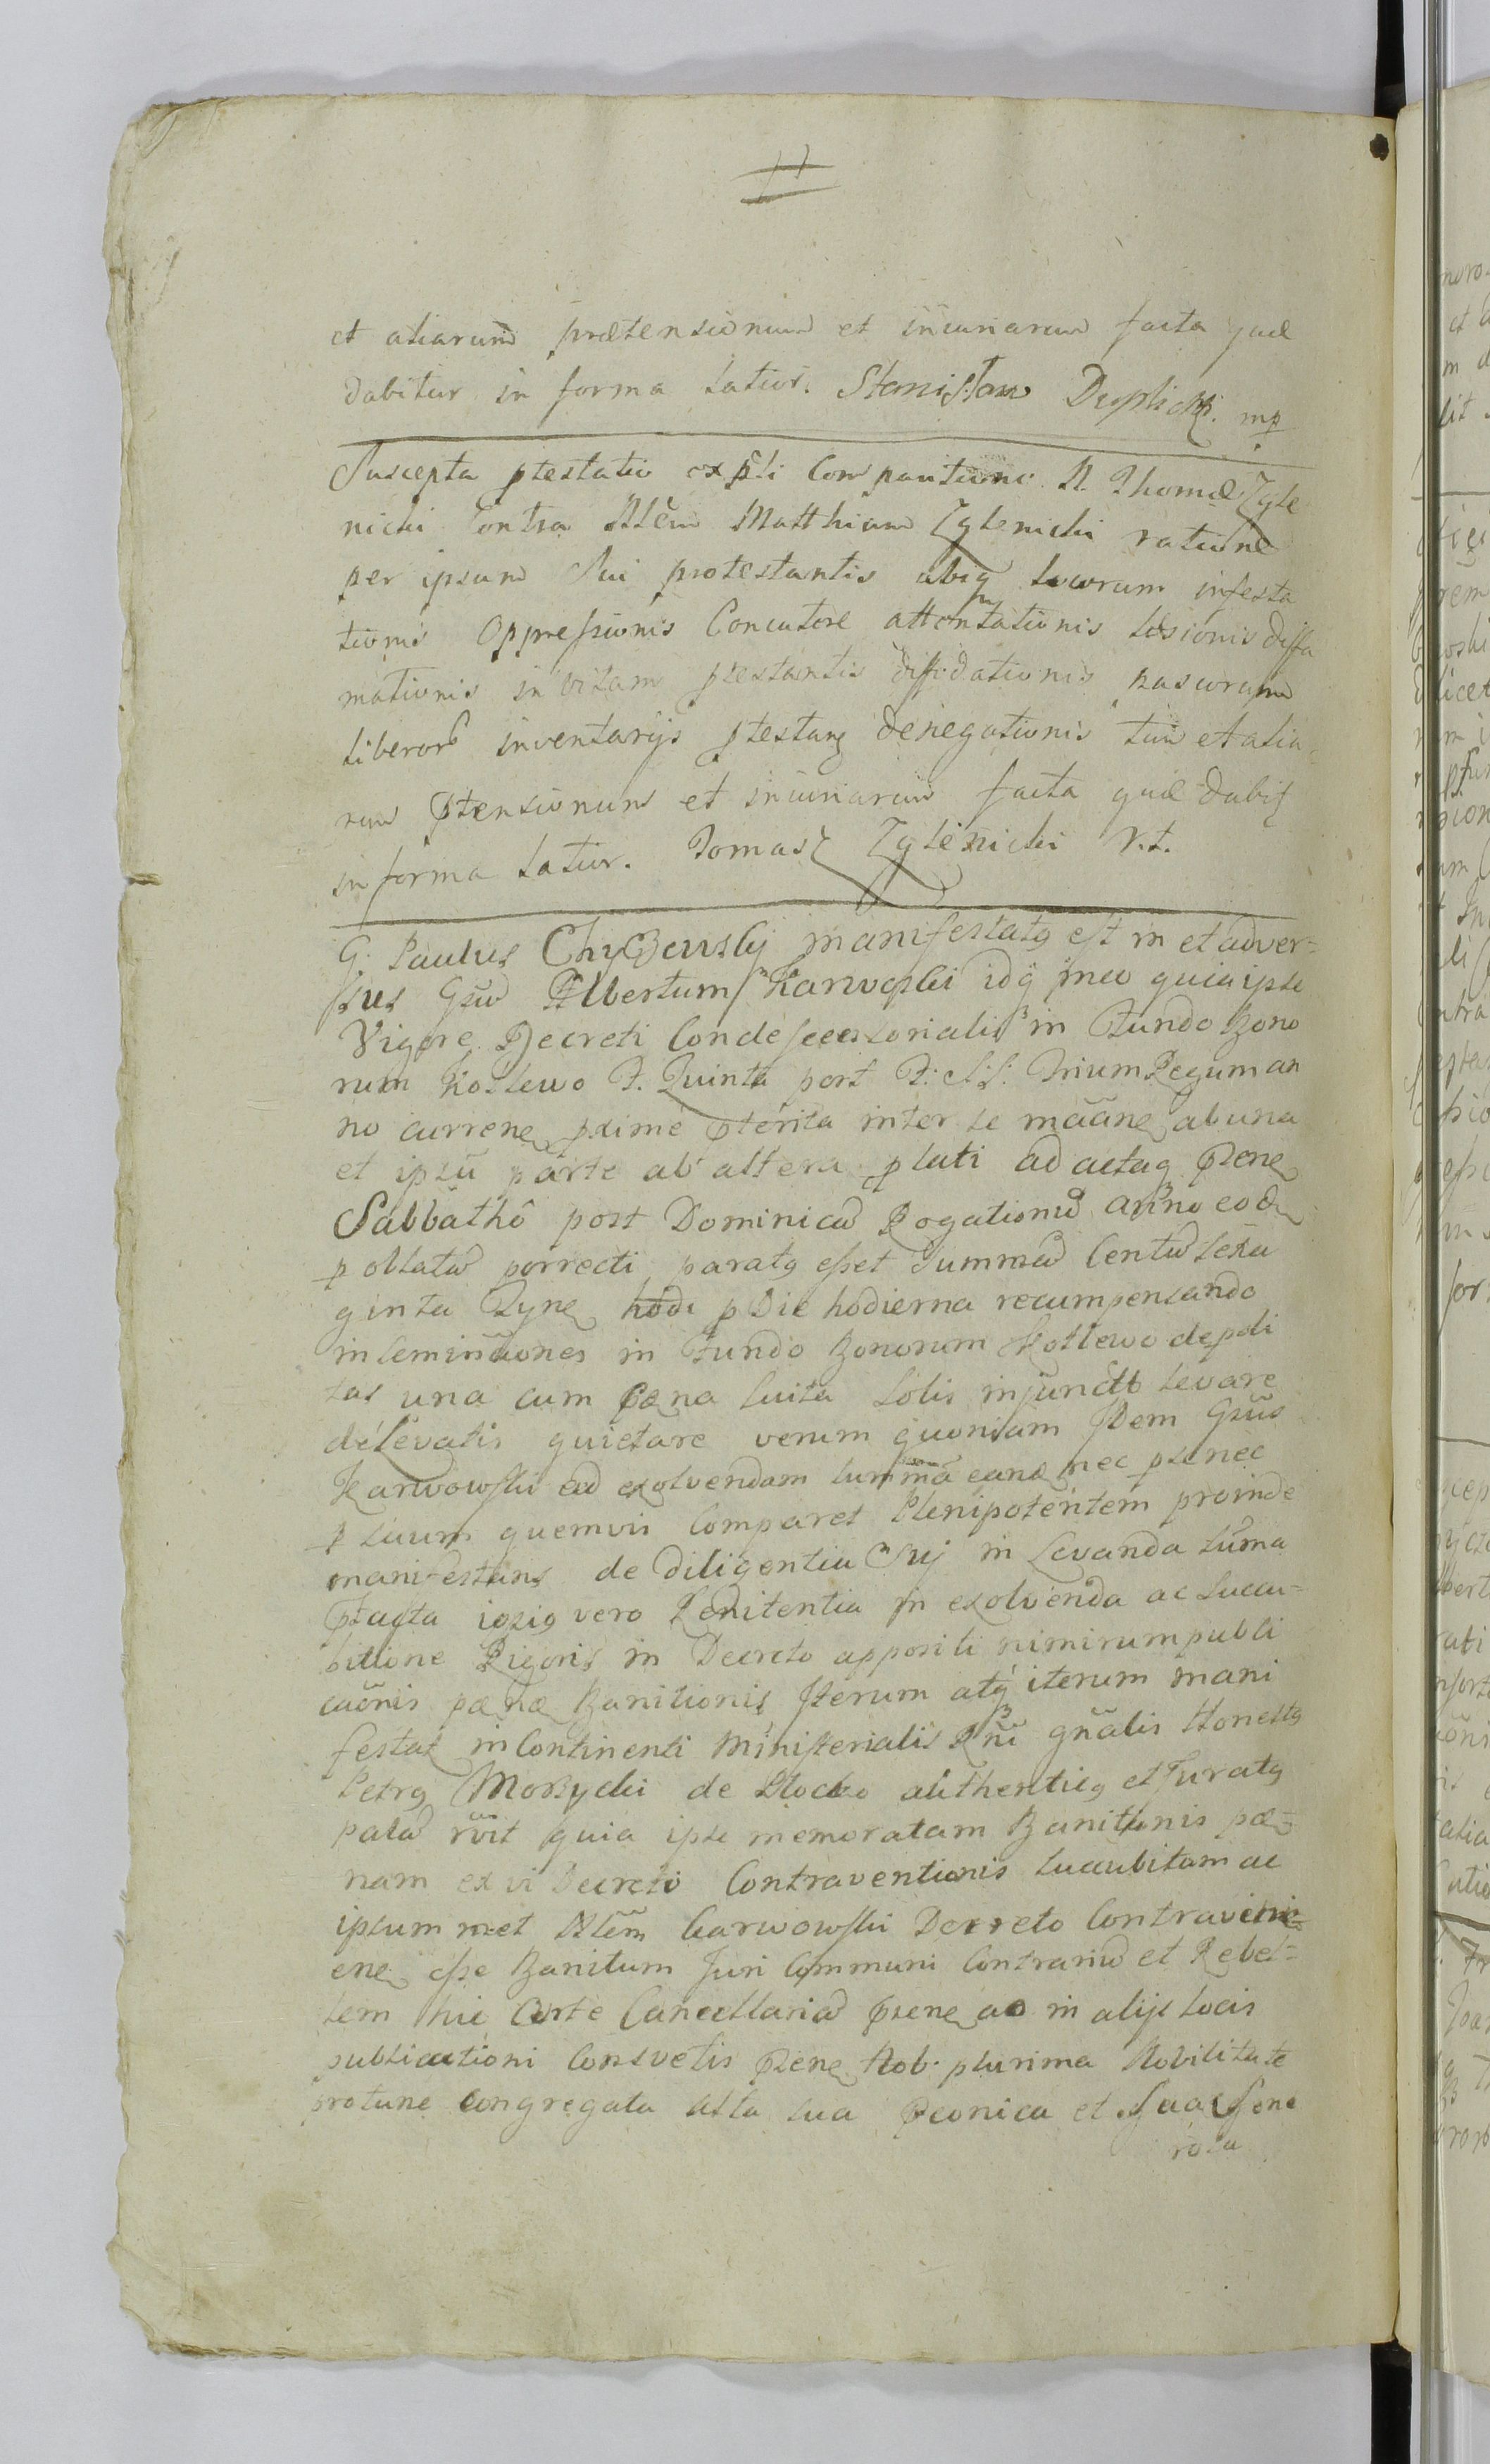 et aliarum prætensionum et iniuriarum facta quæ
dabitur in forma latior. Stanisław Duplicki. mp
Suscepta ptestatio ex psti Comparitione N. Thomæ Zgle
nicki Contra Nlem Matthiam Zglenicki ratione
per ipsum Sui protestantis ubiq locorum infesta
tionis Oppressionis Concutere attentationis læsionis diffa
mationis in vitam ptestantis diffidationis pascorum
liberorũ inventarijs ptestang denegationis tum et alia-
rum ptensionum et iniuriarum facta quæ dabit
in forma latior. Tomasz Zglenicki r.t.
G: Paulus Chyczewskj manifestatq est in et adver-
sus Gsum Albertum Karwoski idq ineo quia ipse
Vigore Decreti Condescensorialis in Fundo Bono
rum Kossewo F. Quinta post F: S:S: Trium Regum an
no currene pxime pterita inter se mããne ab una
et ipsũ parte ab altera plati ad actaq psene
Sabbathô post Dominicã Rogationũ anno eod
p oblatã porrecti paratq esset Summã Centũ sexa
ginta Tyne hodi p Die hodierna recumpensando
inseminãones in Fundo Bonorum Kossewo deposi
tas una cum pæna luita solis injunctô levare
delevatis quietare verum quoniam Idem Gsũs
Karwowski ad exolvendam summã eane nec p se nec
p suum quemvis Comparet Plenipotentem proinde
manifestans de diligentia Suj in Levanda sũma
pfacta ipsiq vero Renitentia in exolvenda ac succu-
bitione Rigoris in Decreto appositi nimirum publi
cãonis pænæ Banitionis Iterum atq iterum mani
festat in Continenti Ministerialis Rñi gñalis Honestq
Petrq Morzycki de Plocko authenticq et Juratq
palã rvit quia ipse memoratam Banitionis pæ-
nam ex vi Decreti Contraventionis succubitam ac
ipsum met Nlem Carwowski Decreto Contravenie-
ene esse Banitum Juri Communi Contrariũ et Rebel-
lem hic Corte Cancellariã psene ac in alijs locis
publicationi Consvetis psene Nob: plurima Nobilitate
protunc congregata alta sua pconica et Sua Gene
rosa